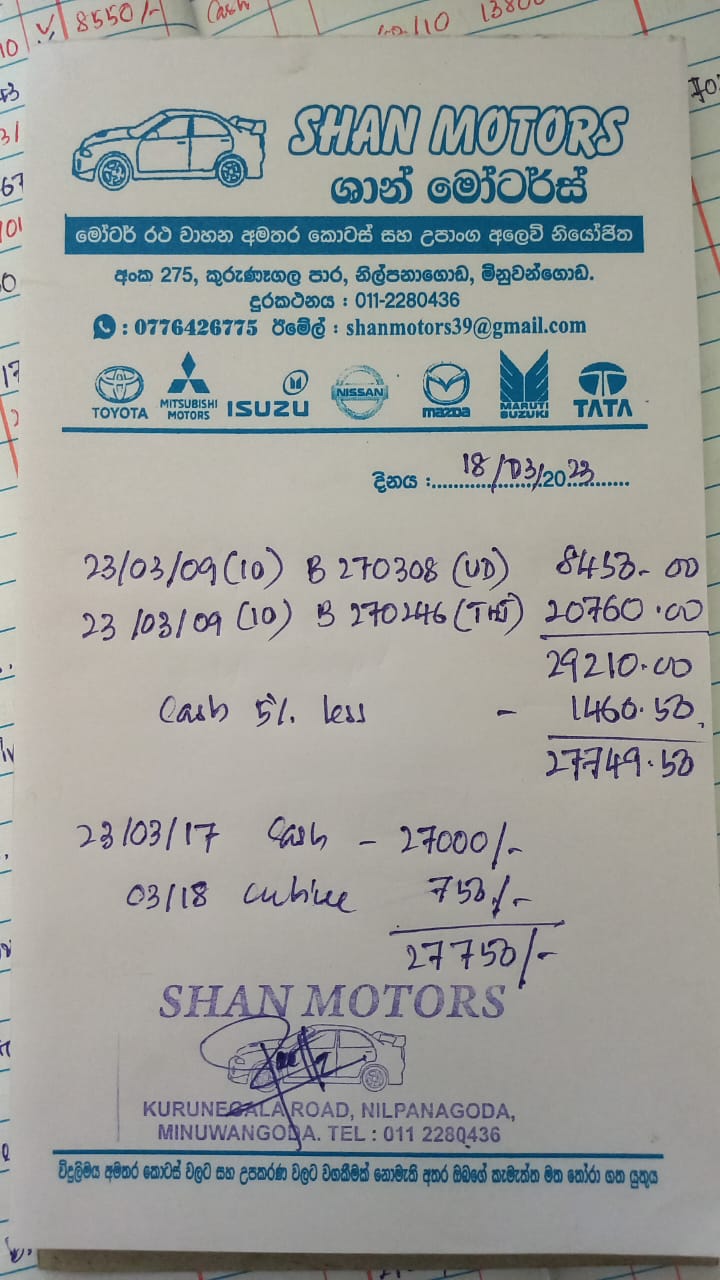 8550/- Cash 10 13800
SHAN MOTORS
ශාන් මෝටර්ස්
මෝටර් රථ වාහන අමතර කොටස් සහ උපාංග අලෙවි නියෝජිත
අංක 275, කුරුණෑගල පාර, නිල්පනාගොඩ, මිනුවන්ගොඩ.
දුරකථනය : 011-2280436
: 0776426775 ඊමේල් : shanmotors39@gmail.com
TOYOTA MITSUBISHI MOTORS ISUZU NISSAN mazda MARUTI SUZUKI TATA
දිනය : 18/03/2023
23/03/09 (10) B 270308 (UD) 8450-00
23/03/09 (10) B 270246 (THJ) 20760.00
29210.00
Cash 5% less - 1460.50
27749.50
23/03/17 Cash - 27000/-
03/18 750/-
27750/-
SHAN MOTORS
KURUNEGALA ROAD, NILPANAGODA,
MINUWANGODA. TEL : 011 2280436
විදුලිමය අමතර කොටස් වලට සහ උපකරණ වලට වගකීමක් නොමැති අතර ඔබගේ කැමැත්ත මත තෝරා ගත යුතුය